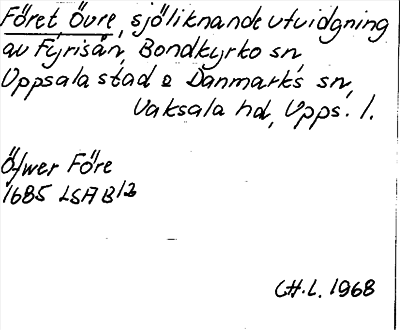 Föret Övre, sjöliknande utvidgning
av Fyrisån, Bondkyrko sn,
Uppsala stad o Danmarks sn,
Vaksala hd, Upps. l.
Öfwer Före
1685 LSA B12
CH.L. 1968